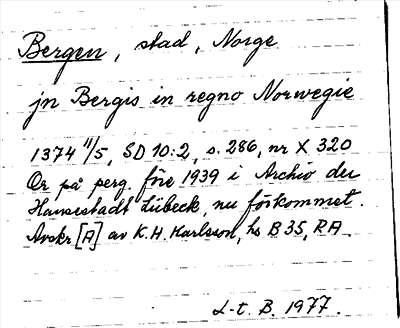 Bergen, stad, Norge
jn Bergis in regno Norwegie
1374 11/5, SD 10:2, s. 286, nr X 320
Or på perg. före 1939 i Archiv der
Hansestadt Lübeck, nu förkommet.
Avskr [A] av K.H. Karlsson, hs B 35, RA.
L-t. B. 1977.